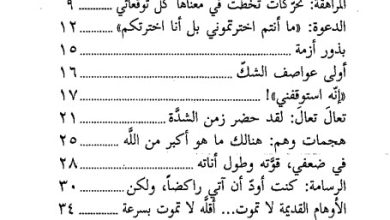 المراهقة: تحرّكات تخطّت في معناها كل توقعاتي ٩
الدعوة: «ما أنتم اخترتموني بل أنا اخترتكم» ١٢
بذور أزمة ........ ١٥
أولى عواصف الشكّ ........ ١٦
«إنّه استوقفني»! ........ ١٧
تعالَ تعالَ: لقد حضر زمن الشدَّة ........ ٢١
هجمات وهم: هنالك ما هو أكبر من اللَّه ........ ٢٥
في ضعفي، قوَّته وطول أناته ........ ٢٨
الرسامة: كنت أودّ أن آتي راكضاً، ولكن ........ ٣٠
الأوهام القديمة لا تموت... أقلّه لا تموت بسرعة ٣٤